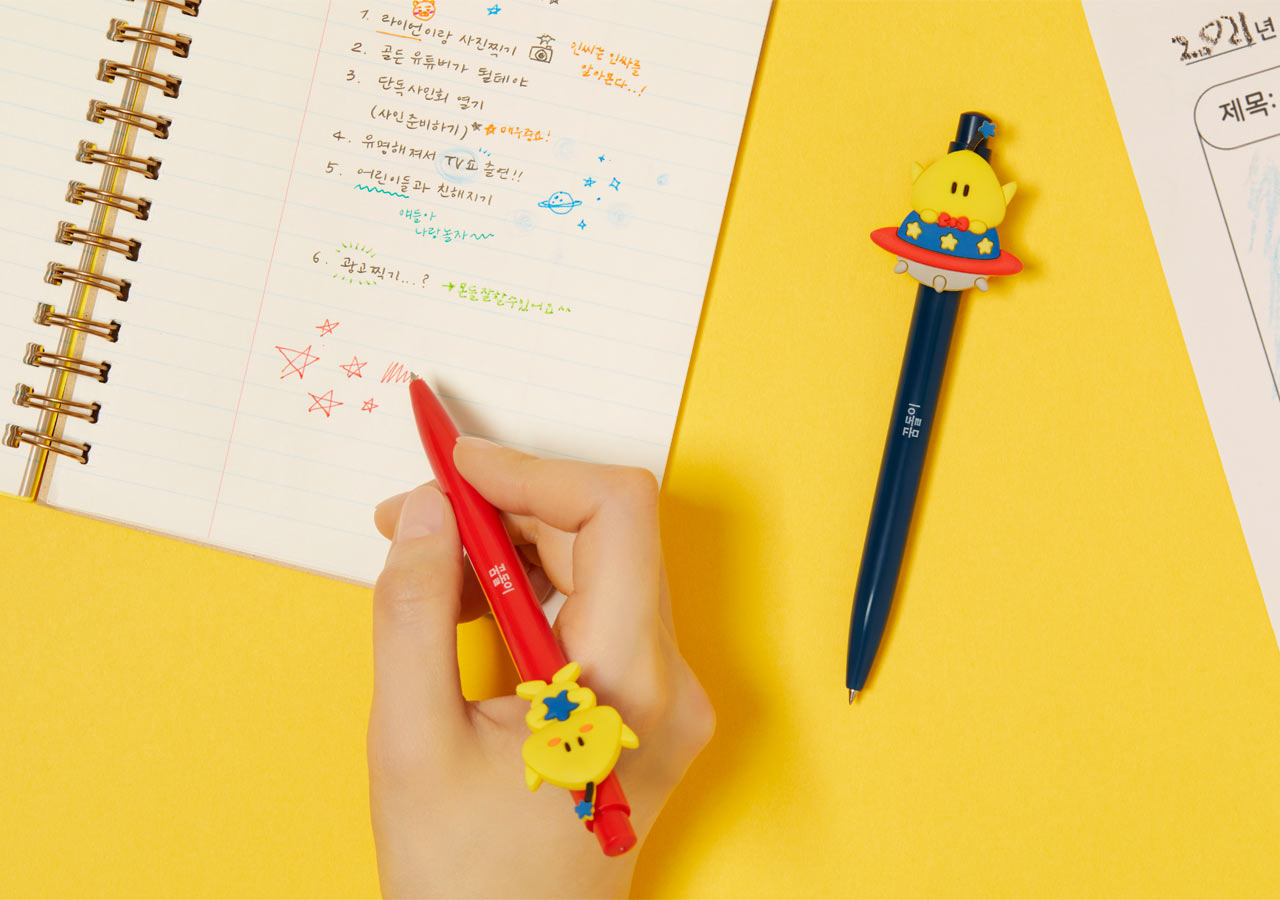 1. 라이언이랑 사진찍기
인싸는 인싸를
알아본다...!
2. 골든 유튜버가 될테야
3. 단독사인회 열기
(사인준비하기) ★ ★ 매우중요!
4. 유명해져서 TV쇼 출연!!
5. 어린이들과 친해지기
얘들아
나랑놀자~
6. 광고찍기...?
→ 온들잘할수있어요^^
꼬돌이
꼬돌이
2021년
제목: